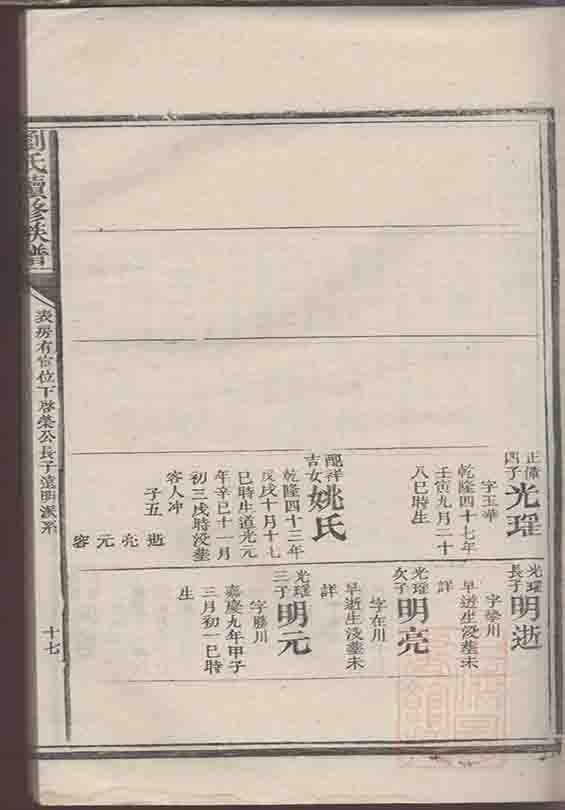 正儒四子光瑶
字玉華
乾隆四十七年
壬寅九月二十
八巳時生
配祥吉女姚氏
乾隆四十三年
戊戌十月十七
巳時生道光元
年辛巳十一月
初三戌時浸塟
客人冲
子五
逝 亮 元 容
光瑶長子明逝
字 川
早逝生浸塟未
詳
光瑶次子明亮
字在川
早逝生浸塟未
詳
光瑶三子明元
字勝川
嘉慶九年甲子
三月初一巳時
生
劉氏續修族譜
表房有 位下啓榮公長子遠明派系
十七